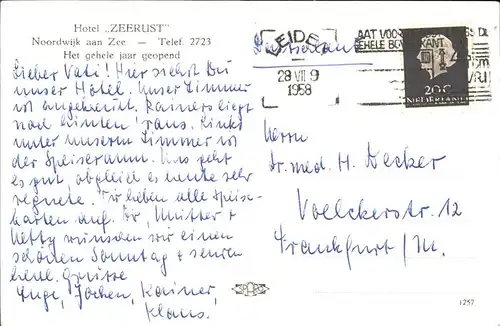 Hotel „ZEERUST"
Noordwijk aan Zee — Telef. 2723
Het gehele jaar geopend
Lieber Vati! Hier siehst Du
unser Hotel. Unser Zimmer
ist angekreuzt. Rainers liegt
nach hinten raus. Links
unter unserem Zimmer ist
der Speiseraum. Uns geht
es gut, obgleich es heute sehr
regnete. Wir heben alle Speise-
karten auf. Dir, Mutter +
Hetty wünschen wir einen
schönen Sonntag + senden
herzl. Grüsse
Inge, Jochen, Rainer,
Klaus.
LEIDEN
28 VII 9
1958
KANT
20 c
NEDERLAND
Herrn
Dr. med. H. Becker
Voelckerstr. 12
Frankfurt/M.
1257